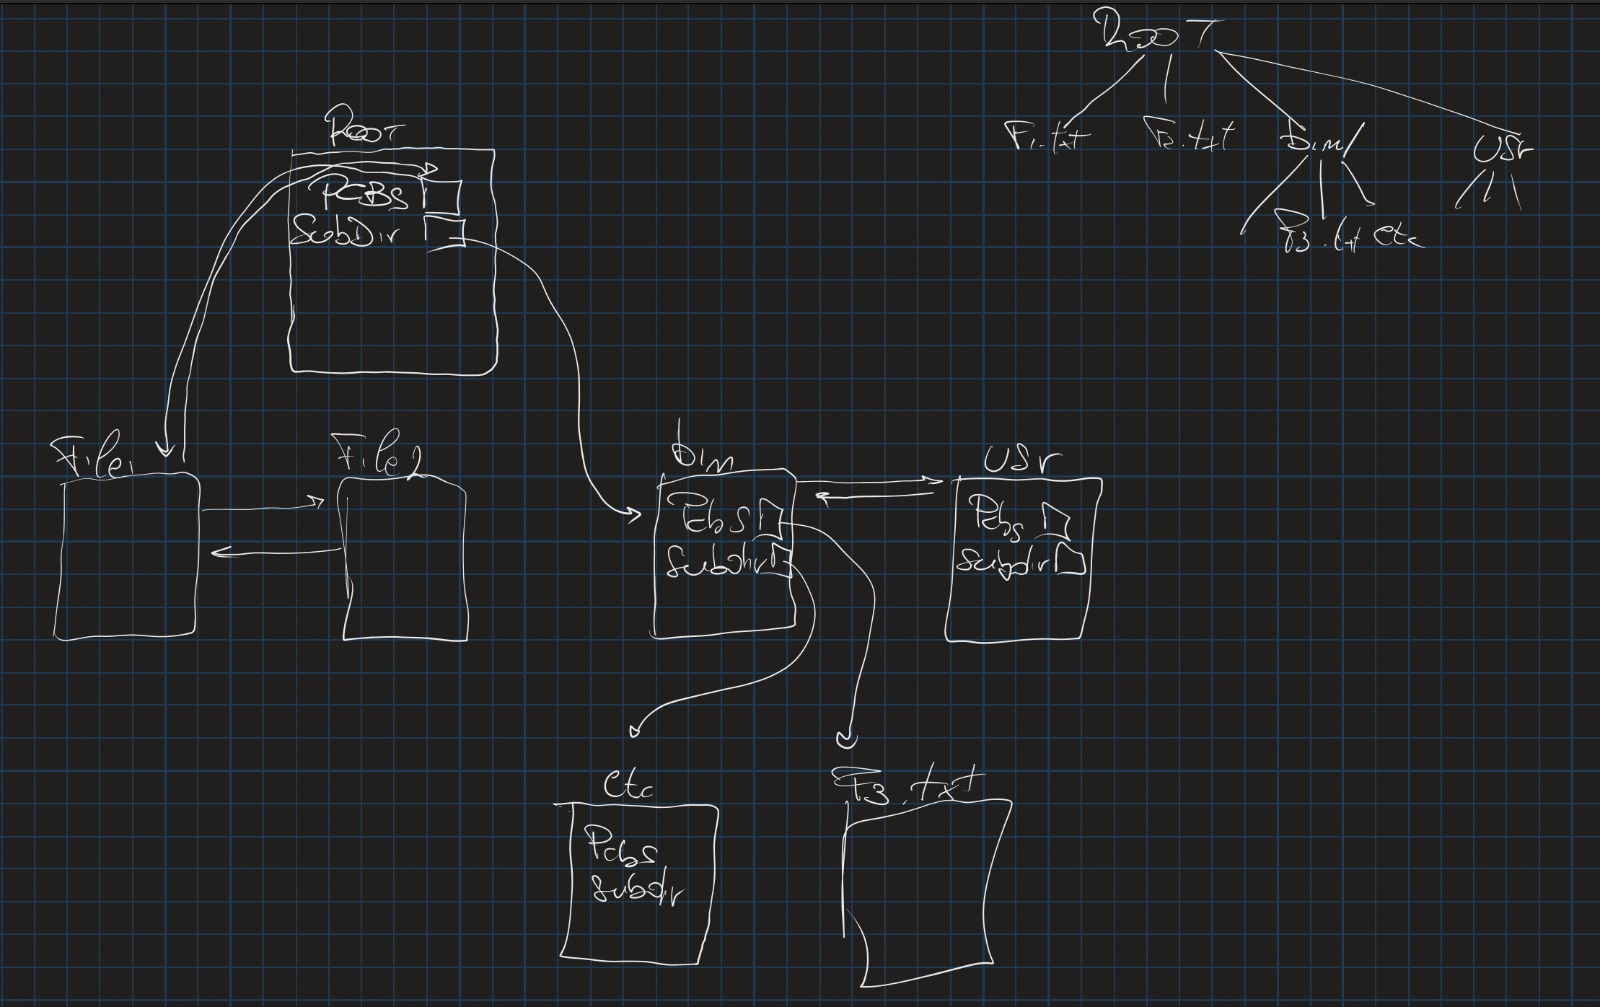 ROOT
F1.txt F2.txt Bin/ USr
F3.txt etc
ROOT
PCBs
SubDir
File1 File2 bin USr
Pcbs
Subdir
Pcbs
Subdir
etc F3.txt
Pcbs
Subdir